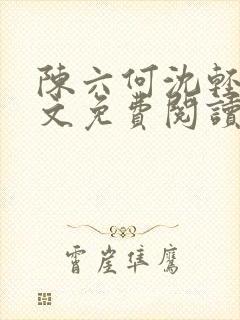 陳六何沈輕
文免費閱讀
霄崖隼鷹